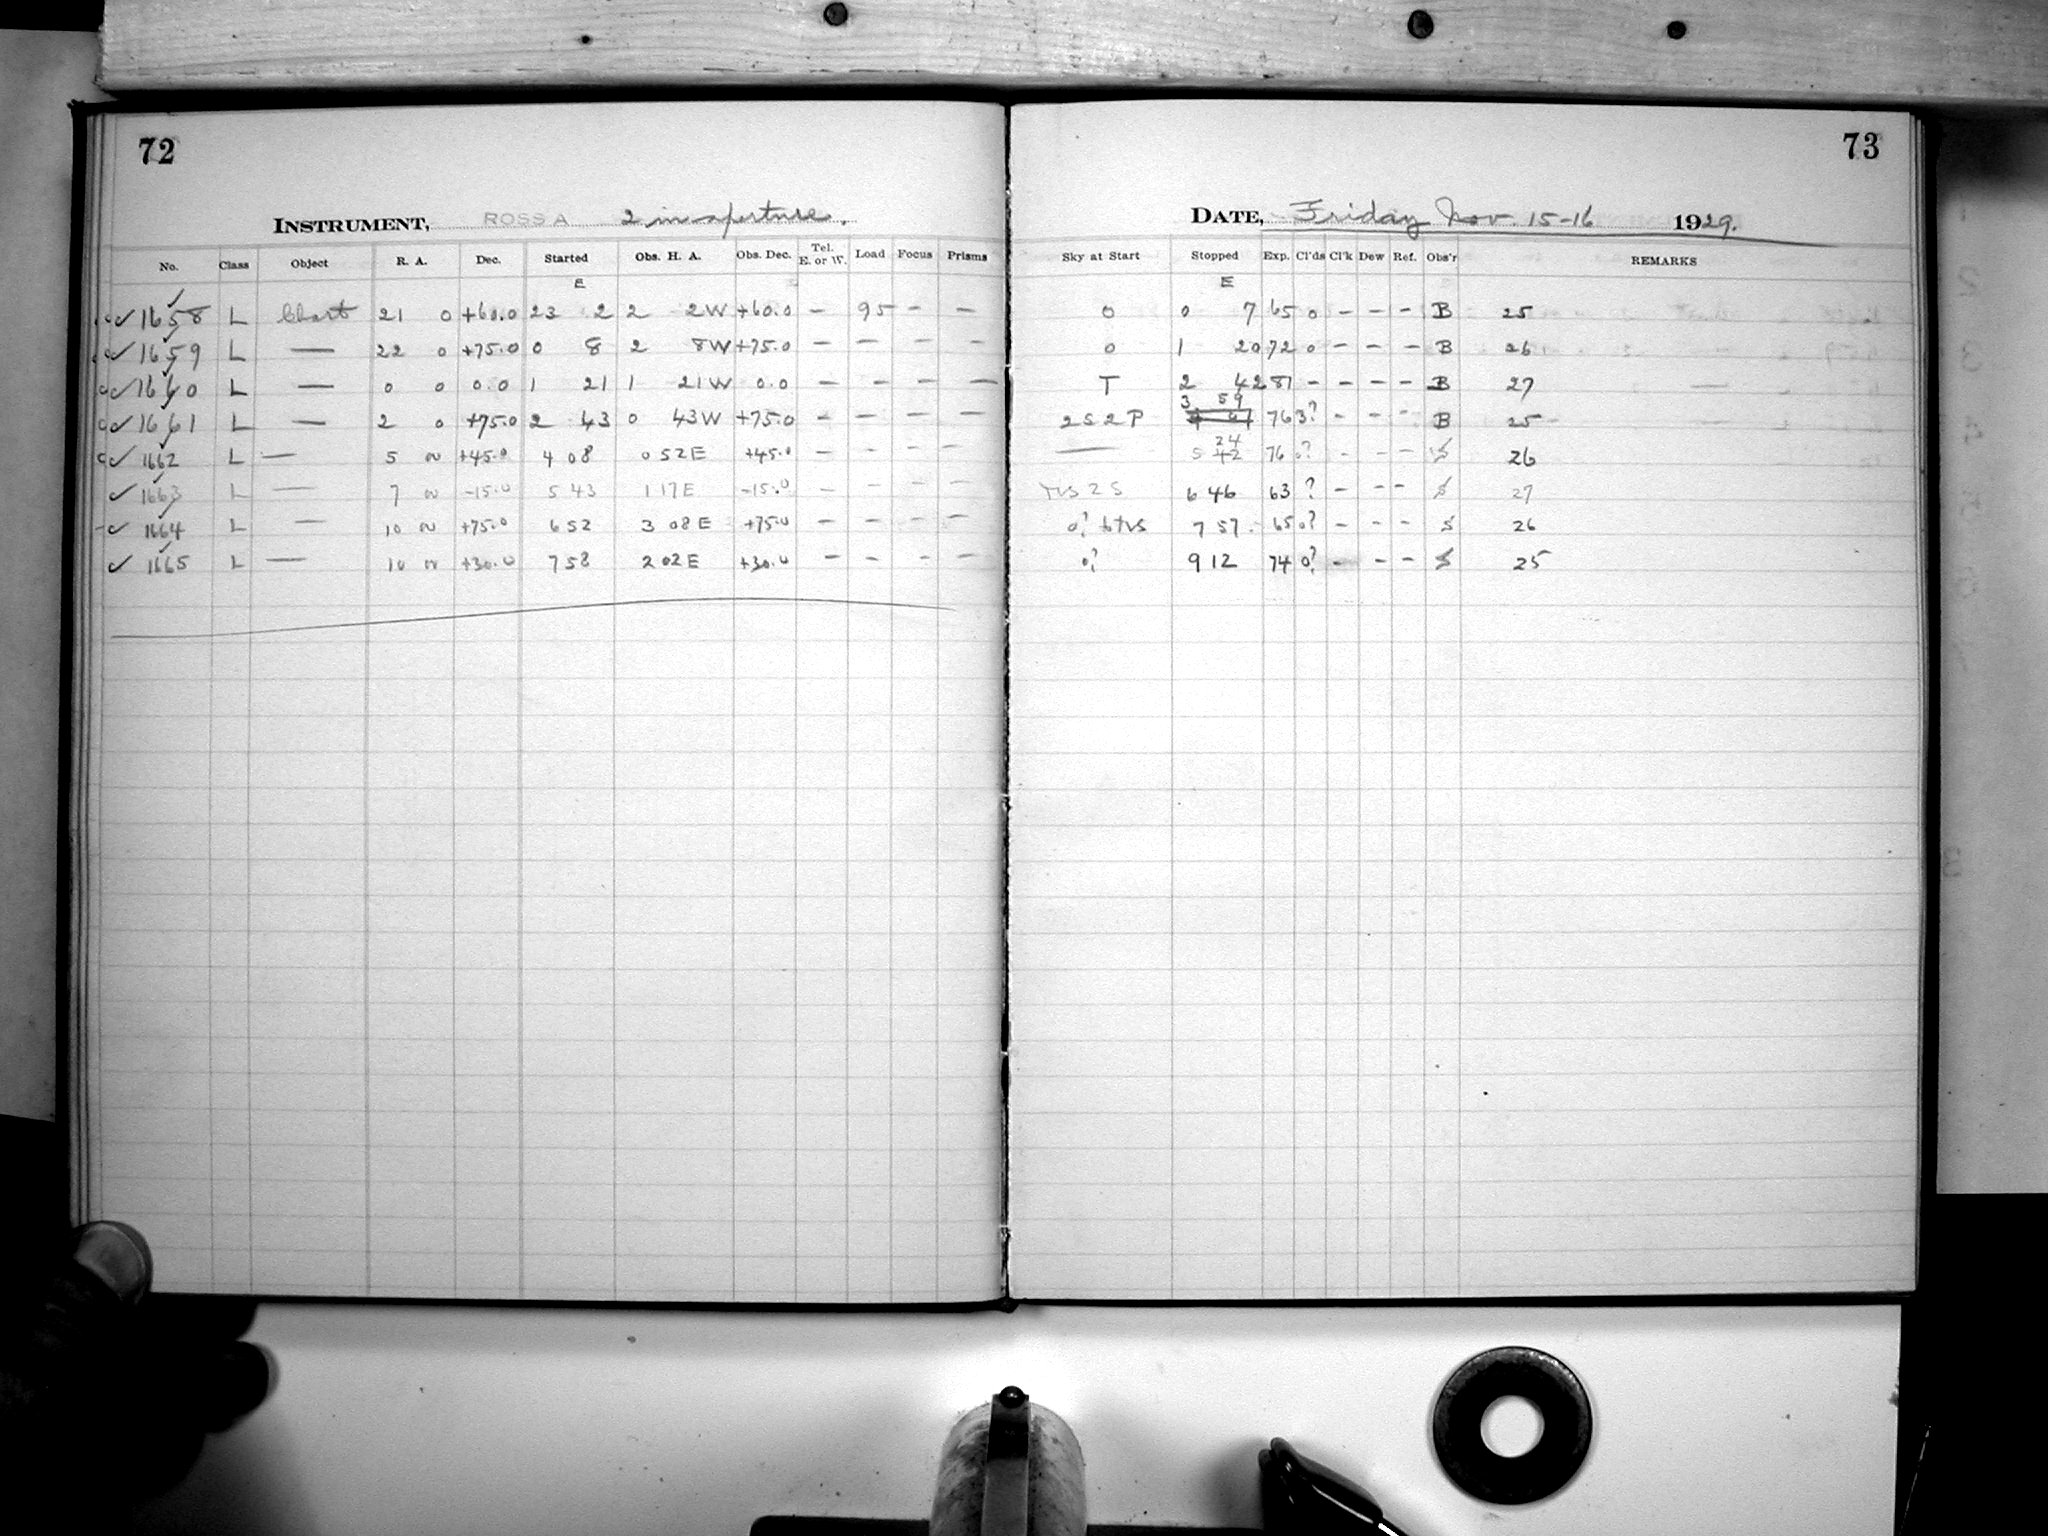 72
INSTRUMENT, ROSS A 2 in aperture.
No. Class Object R. A. Dec. Started Obs. H. A. Obs. Dec. Tel. E. or W. Load Focus Prisms
E
✓ 1658 L Chart 21 0 +60.0 23 2 2 2W +60.0 – 95 – –
✓ 1659 L — 22 0 +75.0 0 8 2 8W +75.0 – – – –
✓ 1660 L — 0 0 0.0 1 21 1 21W 0.0 – – – –
✓ 1661 L — 2 0 +75.0 2 43 0 43W +75.0 – – – –
✓ 1662 L — 5 0 +45.0 4 08 0 52E +45.0 – – – –
✓ 1663 L — 7 0 -15.0 5 43 1 17E -15.0 – – – –
✓ 1664 L — 10 0 +75.0 6 52 3 08E +75.0 – – – –
✓ 1665 L — 10 0 +30.0 7 58 2 02E +30.0 – – – –
73
DATE, Friday Nov. 15-16 1929.
Sky at Start Stopped Exp. Cl'ds Cl'k Dew Ref. Obs'r REMARKS
E
0 0 7 65 0 – – – B 25
0 1 20 72 0 – – – B 26
T 2 42 81 – – – – B 27
3 59
2S2P 76 3? – – – B 25
24
— 5 42 76 0? – – – S 26
2S 6 46 63 ? – – – S 27
0? 7 57 65 0? – – – S 26
0? 9 12 74 0? – – – S 25